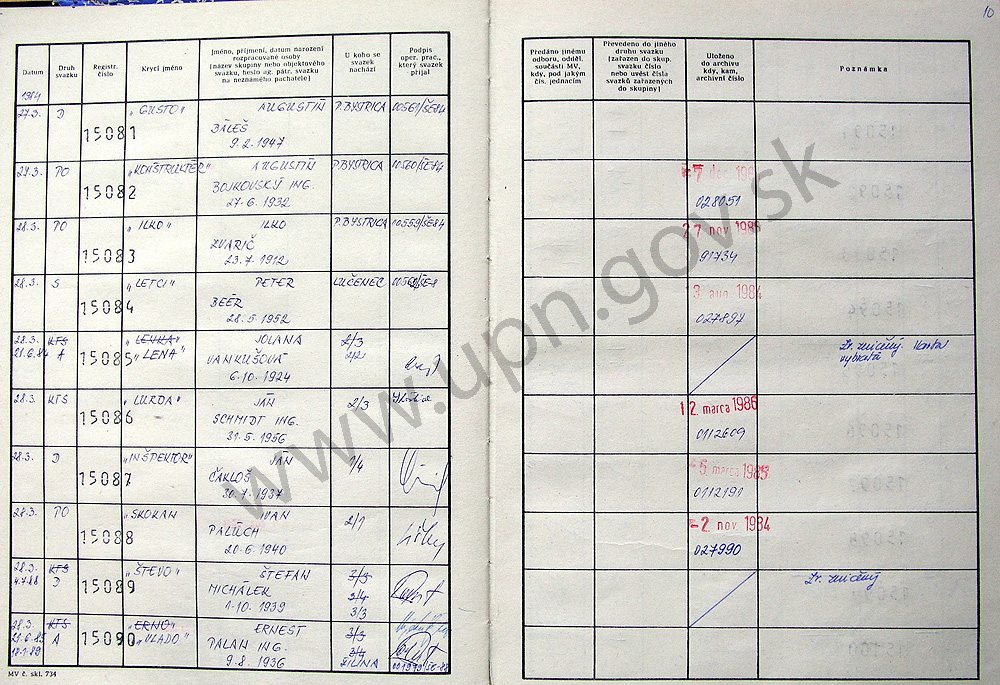 10
Datum
Druh svazku
Registr. číslo
Krycí jméno
Jméno, příjmení, datum narození rozpracované osoby [název skupiny nebo objektového svazku, heslo ag. pátr. svazku na neznámého pachatele]
U koho se svazek nachází
Podpis oper. prac., který svazek přijal
Předáno jinému odboru, odděl. součásti MV, kdy, pod jakým čís. jednacím
Převedeno do jiného druhu svazku [zařazen do skup. svazku číslo nebo uvést čísla svazků zařazených do skupiny]
Uloženo do archivu kdy, kam, archivní číslo
Poznámka
1984
27.3. D 15081 "GUSTO" AUGUSTIN P.BYSTRICA 00561/ŠE84
BÁLEŠ
9.2.1947
27.3. PO 15082 "KONŠTRUKTÉR" AUGUSTIN P.BYSTRICA 00560/ŠE84
BOJKOVSKÝ ING.
27.6.1932
028051
28.3. PO 15083 "ILKO" ILKO P.BYSTRICA 00559/ŠE84
ZVARIČ
23.7.1912
27. nov 1986
91734
28.3. S 15084 "LETCI" PETER LUČENEC
BEÉR
28.5.1952
3. aug. 1984
027897
28.3. KTS 15085 "LENKA" JOLANA 2/3
21.6.84 A "LENA" VANKUŠOVÁ 2/2
6.10.1924
28.3. KTS 15086 "LURDA" JÁN 2/3
SCHMIDT ING.
31.5.1956
12. marca 1986
0112609
28.3. D 15087 "INŠPEKTOR" JÁN 1/4
ČAKLOŠ
30.7.1937
-5. marca 1985
0112191
28.3. PO 15088 "SKOKAN IVAN 2/1
PALÚCH
20.6.1940
-2. nov 1984
027990
28.3. KTS 15089 "ŠTEVO" ŠTEFAN 3/3
4.7.88 D MICHÁLEK 3/4
1.10.1939 3/3
Zr. zničený
28.3. KTS 15090 "ERNO" ERNEST 3/3
21.6.85 A "VLADO" PALAN ING. 3/4
18.1.89 9.8.1936 ŽILINA
MV č. skl. 734
www.upn.gov.sk